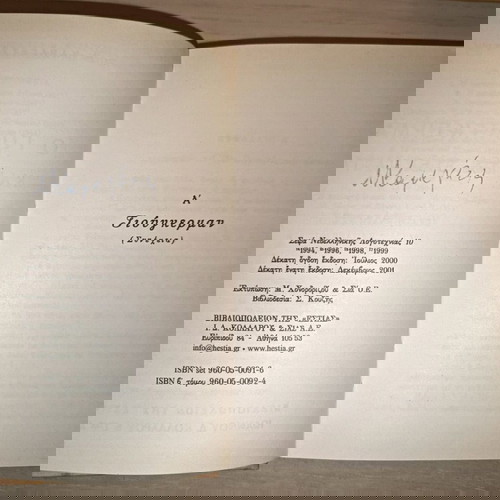 Α΄
Γιούγκερμαν
Σειρά Νεοελληνικής Λογοτεχνίας 10
1998, 1999
Δέκατη όγδοη έκδοση: Ιούλιος 2000
Δέκατη ένατη έκδοση: Δεκέμβριος 2001
Σία Ο.Ε.
Βιβλιοδεσία: Σ.
ΒΙΒΛΙΟΠΩΛΕΙΟΝ ΤΗΣ «ΕΣΤΙΑΣ»
Ι.Δ. ΚΟΛΛΑΡΟΣ & ΣΙΑ Α.Ε.
Ευριπίδου 84 - Αθήνα 10553
info@hestia.gr • www.hestia.gr
ISBN set 960-05-0091-6
ISBN τόμου 960-05-0092-4